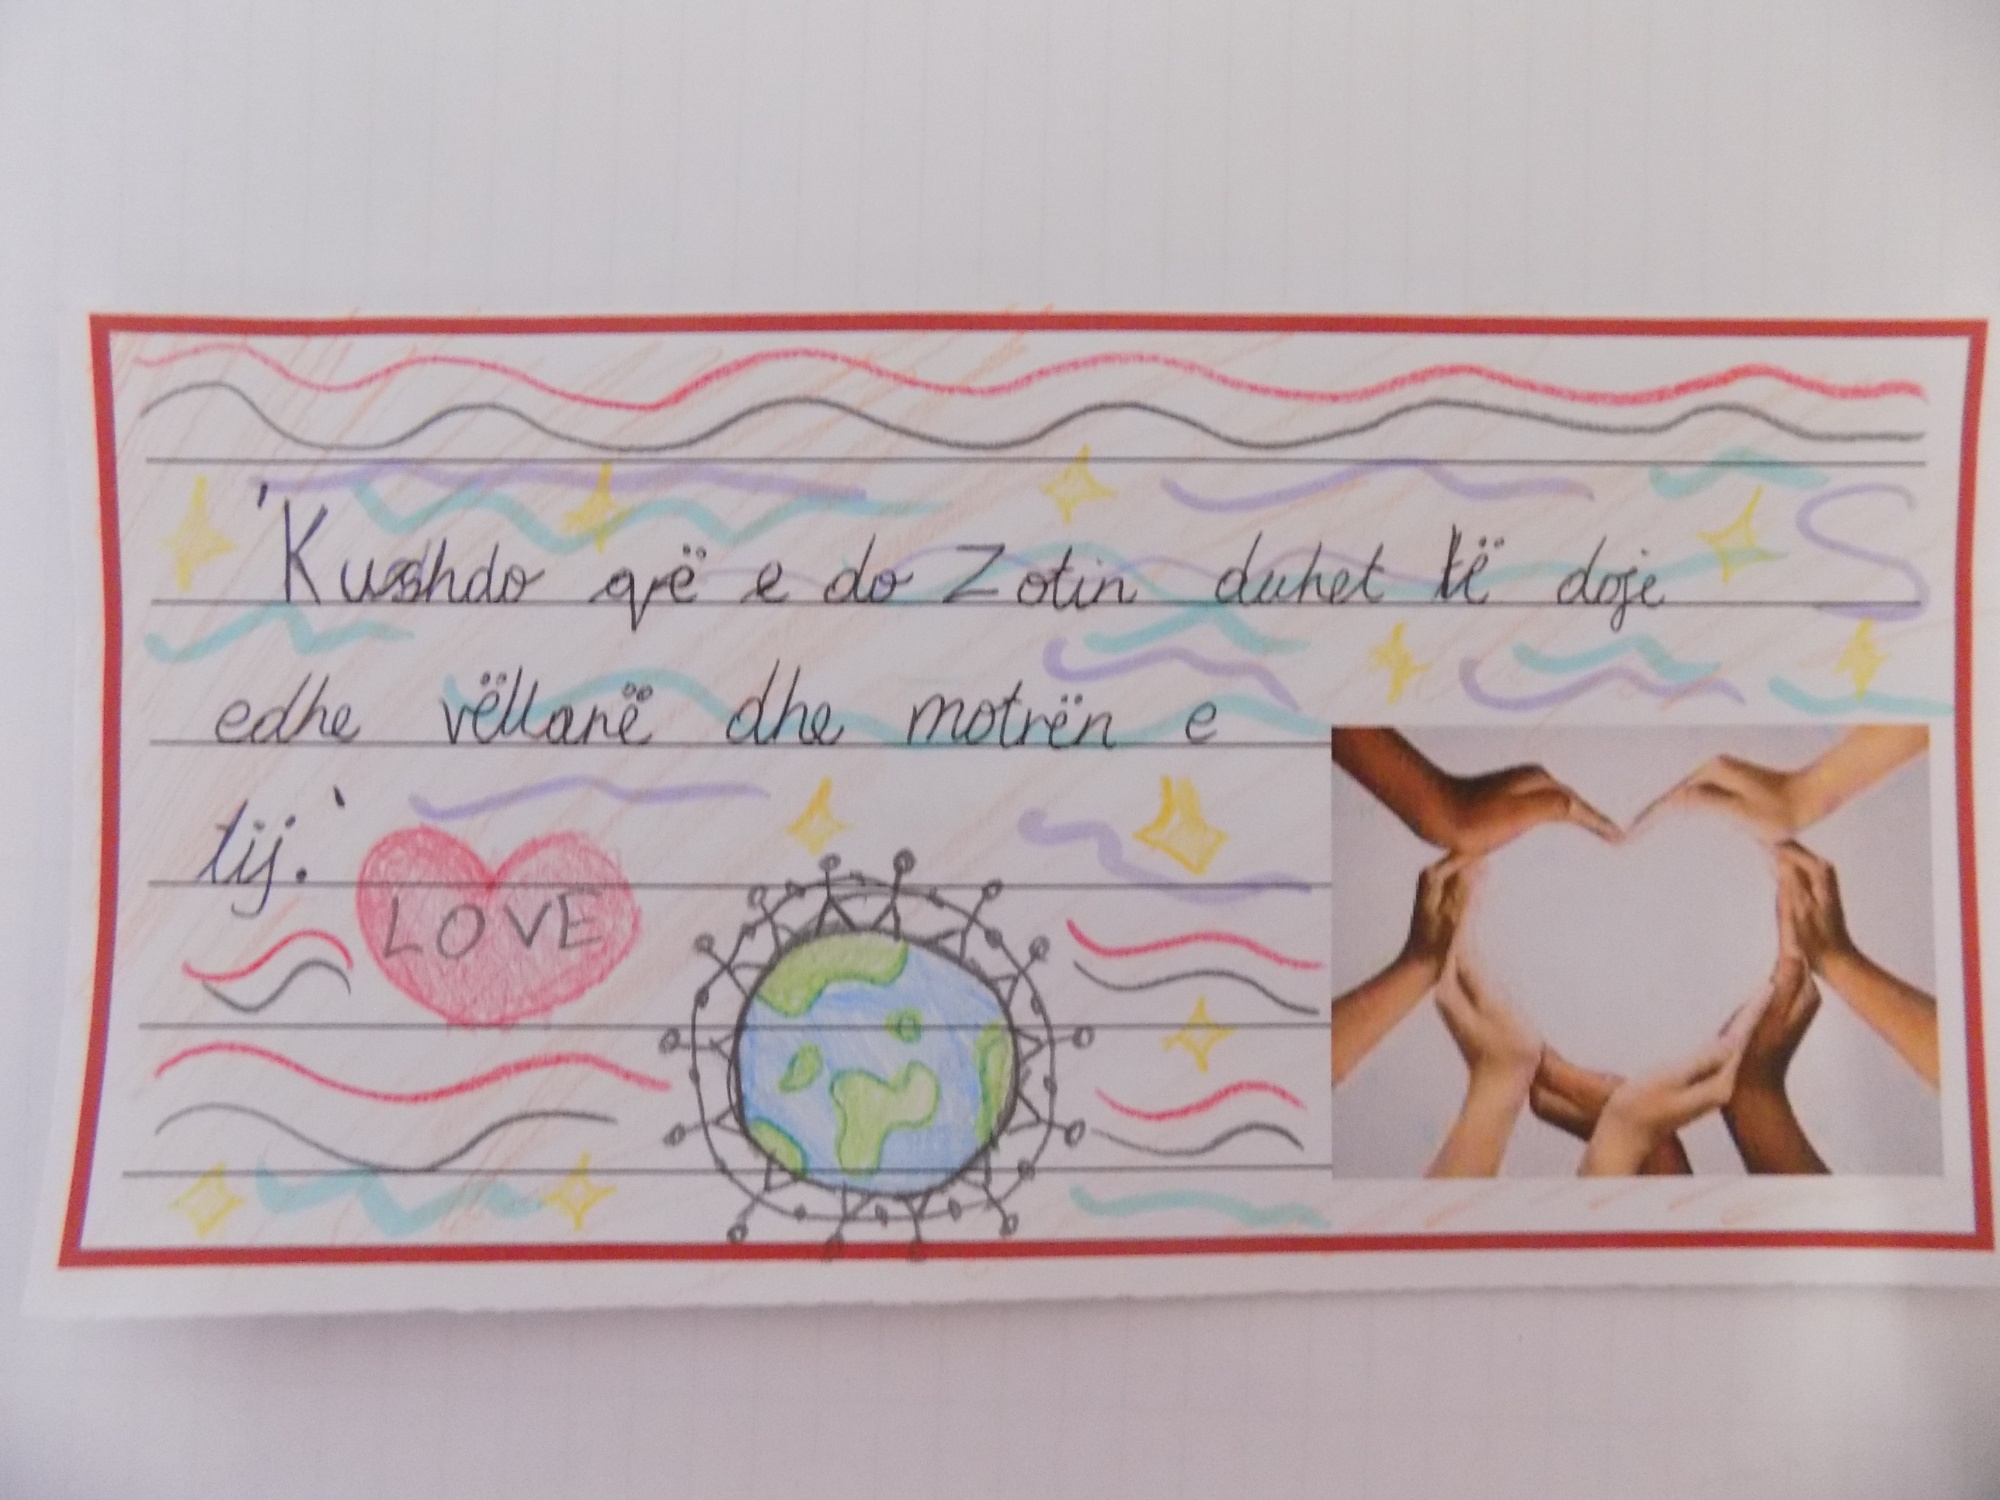 'Kushdo që e do Zotin duhet të doje
edhe vëllanë dhe motrën e
tij.'
LOVE